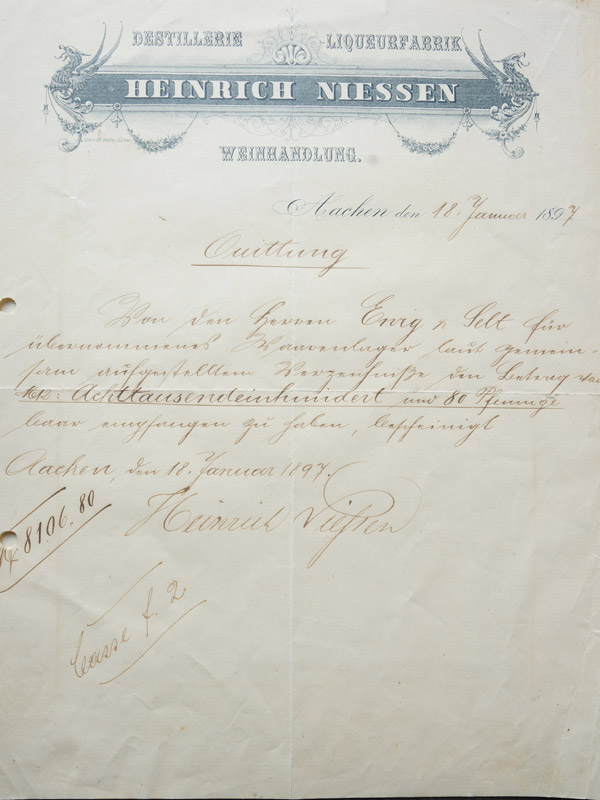 DESTILLERIE LIQUEURFABRIK
HEINRICH NIESSEN
WEINHANDLUNG.
Aachen den 18. Januar 1897
Quittung
Von den Herren & Selt für
übernommenes Waarenlager laut gemein-
sam aufgestelltem Verzeichniße den Betrag von
Mk: Achttausendeinhundert und 80 Pfennige
baar empfangen zu haben, bescheinigt
Aachen, den 18. Januar 1897.
Heinrich Nießen
M 8106.80
Casse f. 2